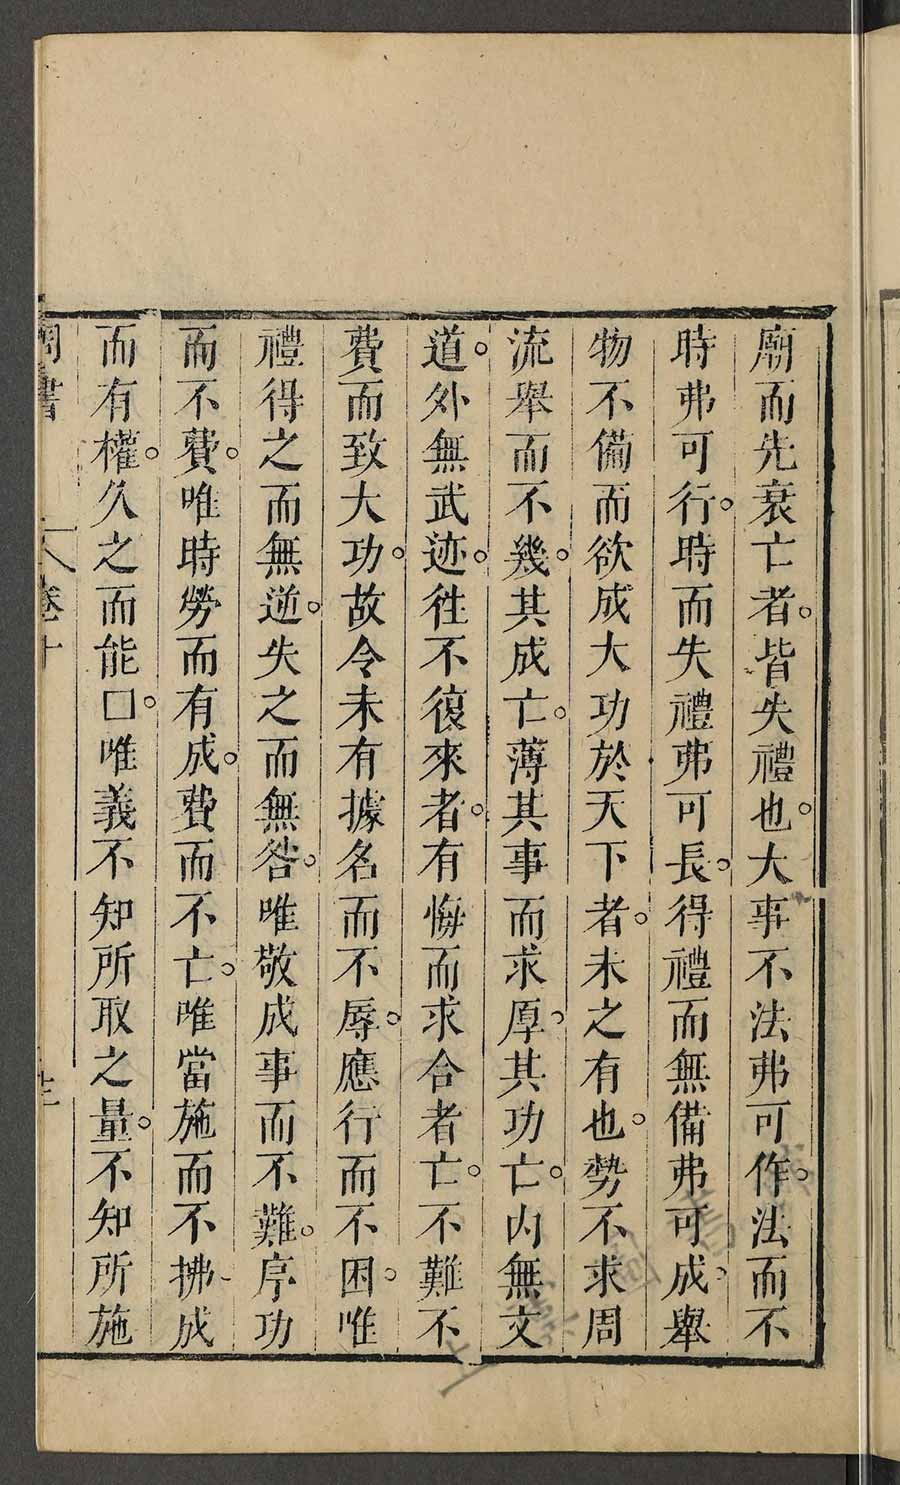 廟而先衰亡者。皆失禮也。大事不法弗可作。法而不
時弗可行。時而失禮弗可長。得禮而無備弗可成。舉
物不備而欲成大功於天下者。未之有也。勢不求周
流舉而不幾。其成亡。薄其事而求厚。其功亡。内無文
道。外無武迹。徃不復來者。有悔而求合者亡。不難不
費而致大功。故今未有據名而不辱。應行而不困。唯
禮得之而無逆。失之而無咎。唯敬成事而不難。序功
而不費。唯時勞而有成。費而不亡。唯當施而不拂成
而有權。久之而能口。唯義不知所取之量。不知所施
周書 卷十